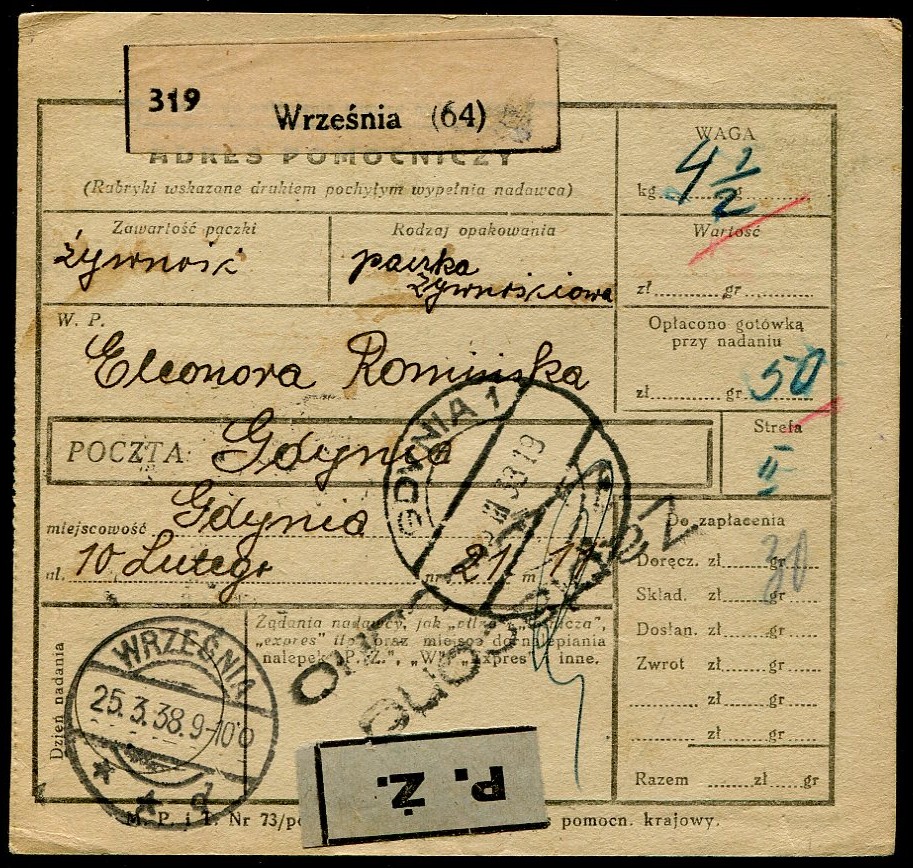 319 Września (64)
ADRES POMOCNICZY
(Rubryki wskazane drukiem pochyłym wypełnia nadawca)
WAGA
kg 4 1/2 g
Zawartość paczki
żywność
Rodzaj opakowania
paczka
żywnościowa
Wartość
zł gr
W. P.
Eleonora Romińska
Opłacono gotówką
przy nadaniu
zł gr 50
POCZTA: Gdynia
Strefa
II
miejscowość Gdynia
ul. 10 Lutego nr 21 m
GDYNIA 1
Do zapłacenia
Doręcz. zł 30 gr
Skład. zł gr
Dosłan. zł gr
Zwrot zł gr
zł gr
zł gr
Razem zł gr
Żądania nadawcy, jak
"expres" itp. oraz miejsce do nalepiania
nalepek "P. Ż.", "W", "Expres" i inne.
Dzień nadania
WRZEŚNIA
25.3.38.9-10
* * d
P. Ż.
M. P. i T. Nr 73/
pomocn. krajowy.